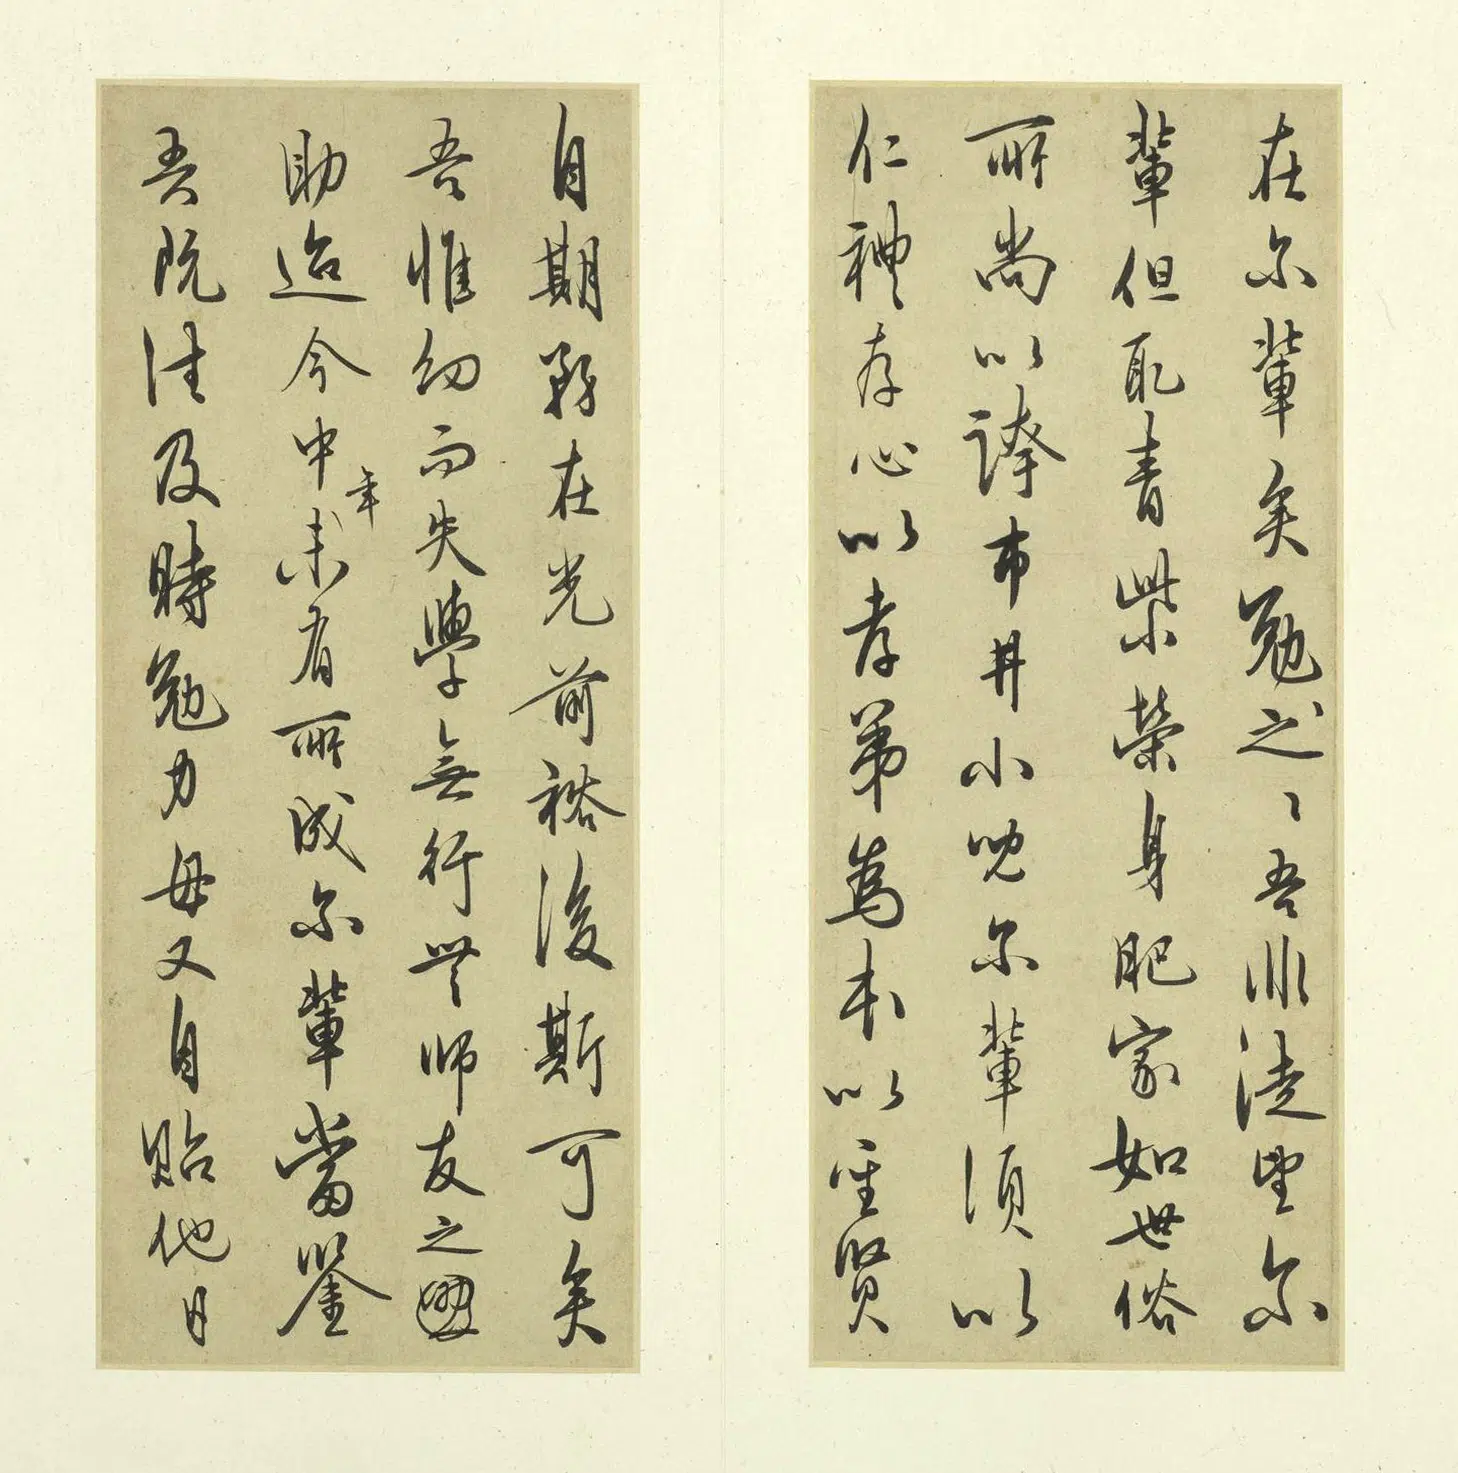 在尔輩矣勉之〻吾非徒望尔
輩但取青紫榮身肥家如世俗
所尚以誇市井小兒尔輩須以
仁禮存心以孝弟爲本以聖賢
自期務在光前裕後斯可矣
吾惟幼而失學無行無師友之
助迨今中年未有所成尔輩當鑒
吾既往及時勉力毋又自貽他日